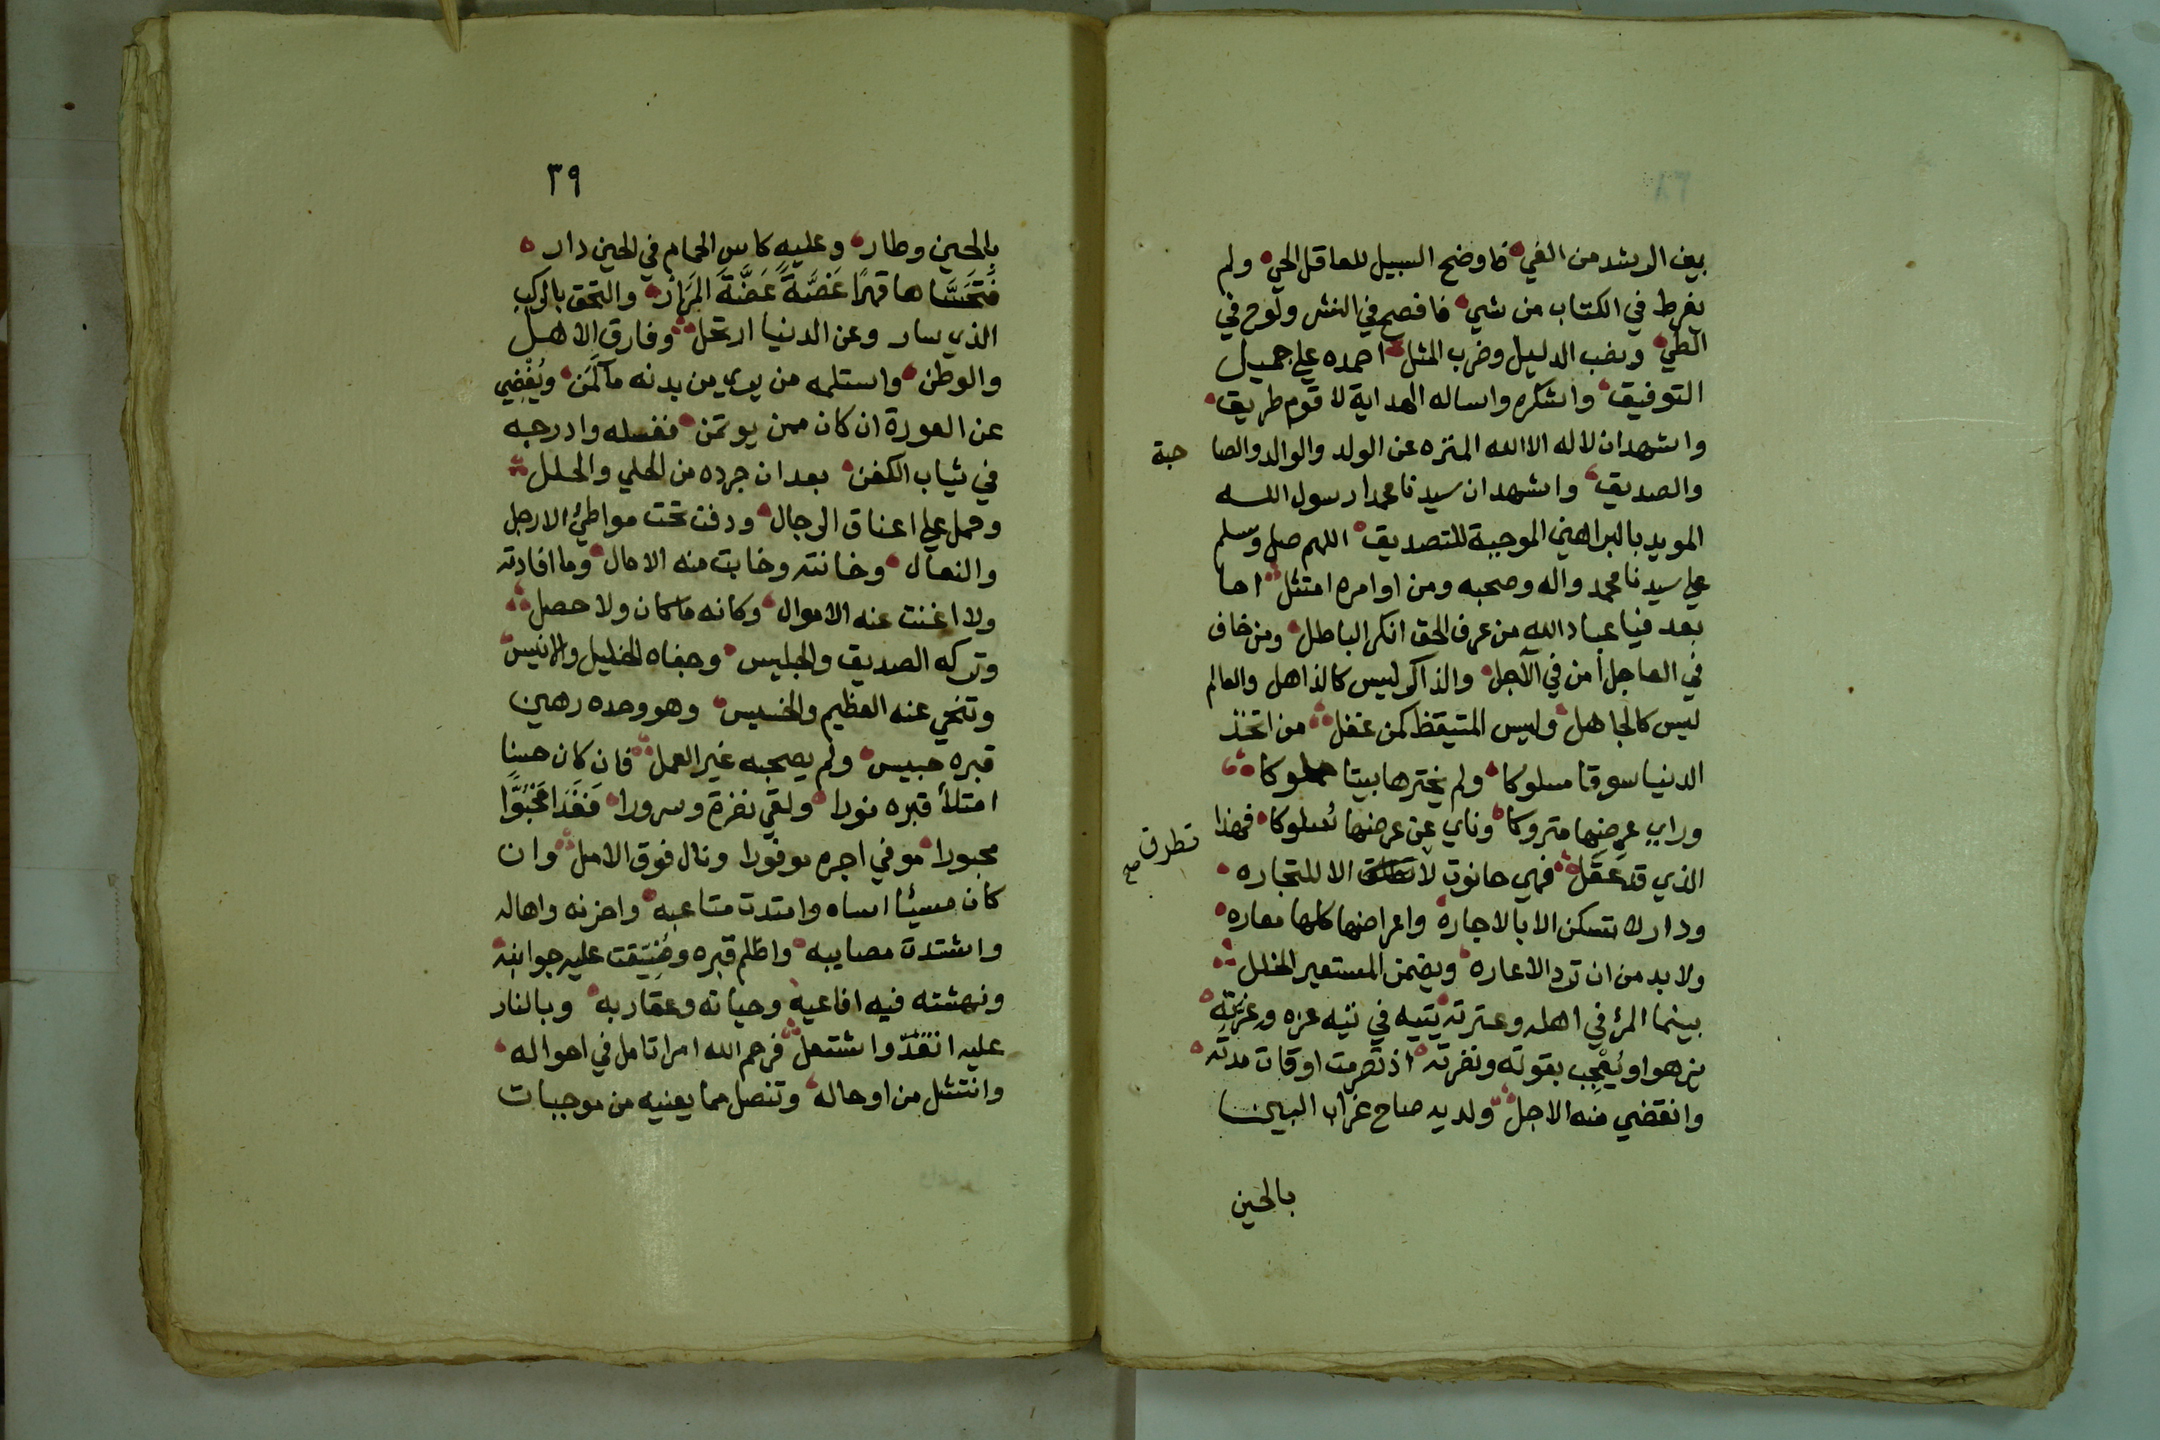 بين الرشد من الغي فاوضح السبيل للعاقل الحي ولم
يفرط في الكتاب من شي فافصح في النشر ولوح في
الطي ونصب الدليل وضرب المثل احمده علي جميل
التوفيق واشكره واساله الهداية لاقوم طريق
واشهد ان لااله الاالله المنزه عن الولد والوالد والصا حبة
والصديق واشهد ان سيدنا محمدا رسول الله
المويد بالبراهين الموجبة للتصديق اللهم صل وسلم
علي سيدنا محمد واله وصحبه ومن اوامره امتثل اما
بعد فيا عباد الله من عرف الحق انكر الباطل ومن خاف
في العاجل أمن في الآجل والذاكر ليس كالذاهل والعالم
ليس كالجاهل وليس المتيقظ كمن غفل من اتخذ
الدنيا سوقا مسلوكا ولم يخترها بيتا مملوكا
وراي عرضها متروكا وناي عن عرضها سلوكا فهذا
الذي قد عَقَل فهي حانوت لا تطرق الا للتجاره
صح
ودار لا تسكن الا بالاجارة واعراضها كلها معاره
ولا بد من ان ترد الاعاره ويضمن المستعير الخلل
بينما المرؤ في اهله وعترته يتيه في تيه عزه وعزته
يزهو او يُعْجِب بقوته ونضرته اذ تصرمت اوقات مدته
وانقضي منه الاجل ولديه صاح غراب البين
بالحين
٣٩
بالحين وطار وعليه كاس الحمام في الحين دار
فتَحَسَّاها قهرًا غَصَّةً غَصَّةَ المَرَار والتحق بالركب
الذي سار وعن الدنيا ارتحل وفارق الاهل
والوطن واستلمه من يري من بدنه ما كَمَن ويُفْضِي
عن العورة ان كان ممن يوتمن فغسله وادرجه
في ثياب الكفن بعد ان جرده من الحلي والحلل
وحمل علي اعناق الرجال ودفن تحت مواطئ الارجل
والنعال وخانته وخابت منه الامال وما افادته
ولا اغنت عنه الاموال وكانه ما كان ولا حصل
وتركه الصديق والجليس وجفاه الخليل والانيس
وتنحي عنه العظيم والخسيس وهو وحده رهين
قبره حبيس ولم يصحبه غير العمل فان كان حسنا
امتلأ قبره نورا ولقي نضرة وسرورا فَغَدَا مَحْبُوًّا
محبورا موفي اجره موفورا ونال فوق الامل وان
كان مسيئا اساه وامتدت متاعبه واحزنه واهاله
واشتدت مصايبه واظلم قبره وضُيِّقت عليه جوانبه
ونهشته فيه افاعيه وحياته وعقاربه وبالنار
عليه انقدّ واشتعل فرحم الله امرا تامل في احواله
وانتشل من اوحاله وتنصل مما يعنيه من موجبات